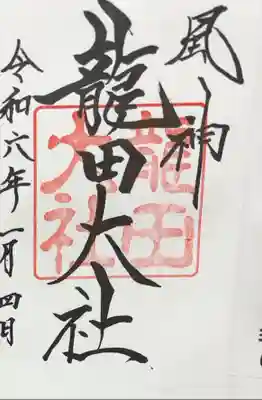 風神
龍田大社
龍田大社
令和六年一月四日